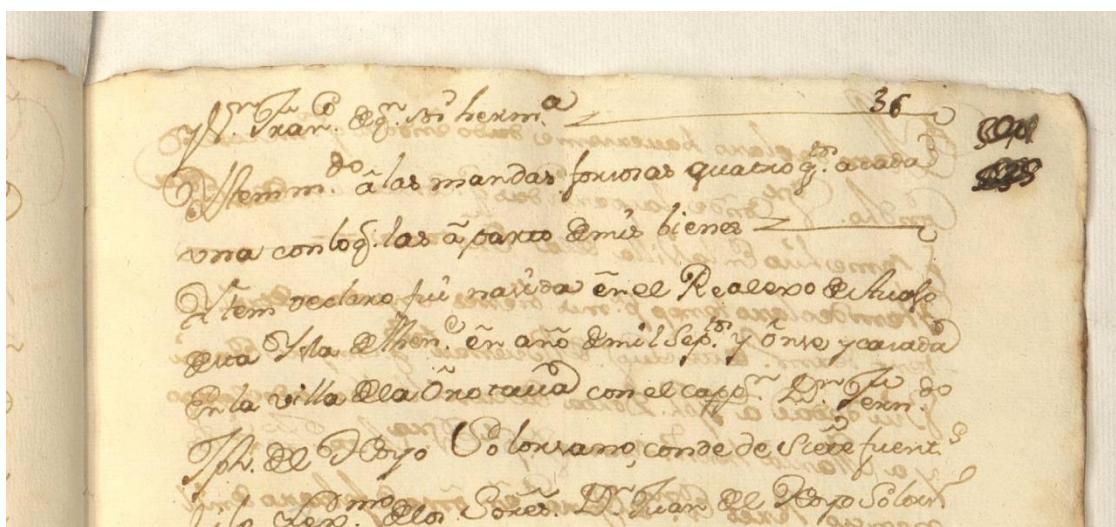 y S.n Fran.co de q.n soi herm.a 36
Ytem m.do â las mandas forsosas quatro q.tos a cada
una con lo q. las âparto de mis bienes
Ytem declaro fui nasida en el Realexo de
esta Ysla de Then.e en año de mil Sep.tos y onse y casada
En la villa de la Orotava con el capp.n D.n Fern.do
Jph. del Hoyo Solorsano, conde de Siete fuent.s
de los Sores. D.n Juan del Hoyo Solors